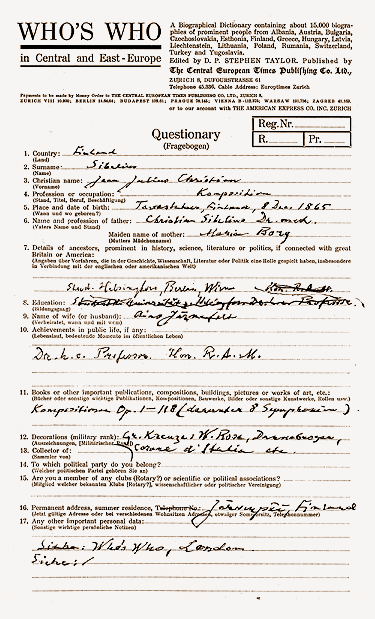 WHO'S WHO
in Central and East-Europe
A Biographical Dictionary containing about 15,000 biogra-
phies of prominent people from Albania, Austria, Bulgaria,
Czechoslovakia, Esthonia, Finland, Greece, Hungary, Latvia,
Liechtenstein, Lithuania, Poland, Rumania, Switzerland,
Turkey and Yugoslavia.
Edited by D. P. STEPHEN TAYLOR. Published by
The Central European Times Publishing Co. Ltd.,
ZURICH 8, DUFOURSTRASSE 61
Telephone 45.339. Cable Address: Europtimes Zurich
Payments to be made by Money Order to THE CENTRAL EUROPEAN TIMES PUBLISHING CO. LTD., ZURICH 8.
or to our account with THE AMERICAN EXPRESS CO. INC. ZURICH
Reg. Nr.
R. Pr.
Questionary
(Fragebogen)
1. Country: Finland
(Land)
2. Surname: Sibelius
(Name)
3. Christian name: Jean Julius Christian
(Vorname)
4. Profession or occupation: Komposition
(Stand, Titel, Beruf, Beschäftigung)
5. Place and date of birth: Tavastehus, Finland, 8 Dec. 1865
(Wann und wo geboren?)
6. Name and profession of father: Christian Sibelius Dr. med.
(Vaters Name und Stand)
Maiden name of mother: Maria Borg
(Mutters Mädchenname)
7. Details of ancestors, prominent in history, science, literature or politics, if connected with great
Britain or America:
(Angaben über Vorfahren, die in der Geschichte, Wissenschaft, Literatur oder Politik eine Rolle gespielt haben, insbesondere
in Verbindung mit der englischen oder amerikanischen Welt)
Stud. Helsingfors, Berlin, Wien
8. Education:
(Bildungsgang)
9. Name of wife (or husband): Aino Järnefelt
(Verheiratet, wann und mit wem)
10. Achievements in public life, if any:
(Lebenslauf, bedeutende Momente im öffentlichen Leben)
Dr. h. c. Professor. Hon. R. A. M.
11. Books or other important publications, compositions, buildings, pictures or works of art, etc.:
(Bücher oder sonstige wichtige Publikationen, Kompositionen, Bauwerke, Bilder oder sonstige Kunstwerke, Rollen usw.)
Kompositionen Op. 1–118 (darunter 8 Symphonien).
12. Decorations (military rank): Gr. Kreuze: W. Rose, Dannebrogen,
(Auszeichnungen, [Militärischer Rang])
13. Collector of: Corona d'Italia etc.
(Sammler von)
14. To which political party do you belong?
(Welcher politischen Partei gehören Sie an)
15. Are you a member of any clubs (Rotary?) or scientific or political associations?
(Mitglied welcher bekannten Klubs [Rotary?], wissenschaftlicher oder politischer Vereinigung)
16. Permanent address, summer residence, Telephone No.: Järvenpää, Finland
(Jetzt gültige Adresse oder bei verschiedenen Wohnsitzen Adressen, etwaiger Sommersitz, Telephonnummer)
17. Any other important personal data:
(Sonstige wichtige persönliche Notizen)
Siehe: Who's Who, London
Siehe!